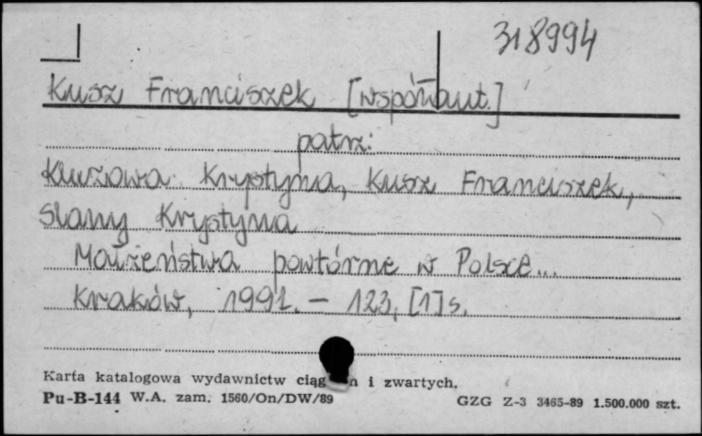 318994
Kusz Franciszek [współaut.]
patrz:
Krystyna, Kusz Franciszek,
Slany Krystyna
Małżeństwa powtórne w Polsce...
Kraków, 1991. – 123, [1] s.
Karta katalogowa wydawnictw i zwartych.
Pu-B-144 W.A. zam. 1560/On/DW/89
GZG Z-3 3465-89 1.500.000 szt.